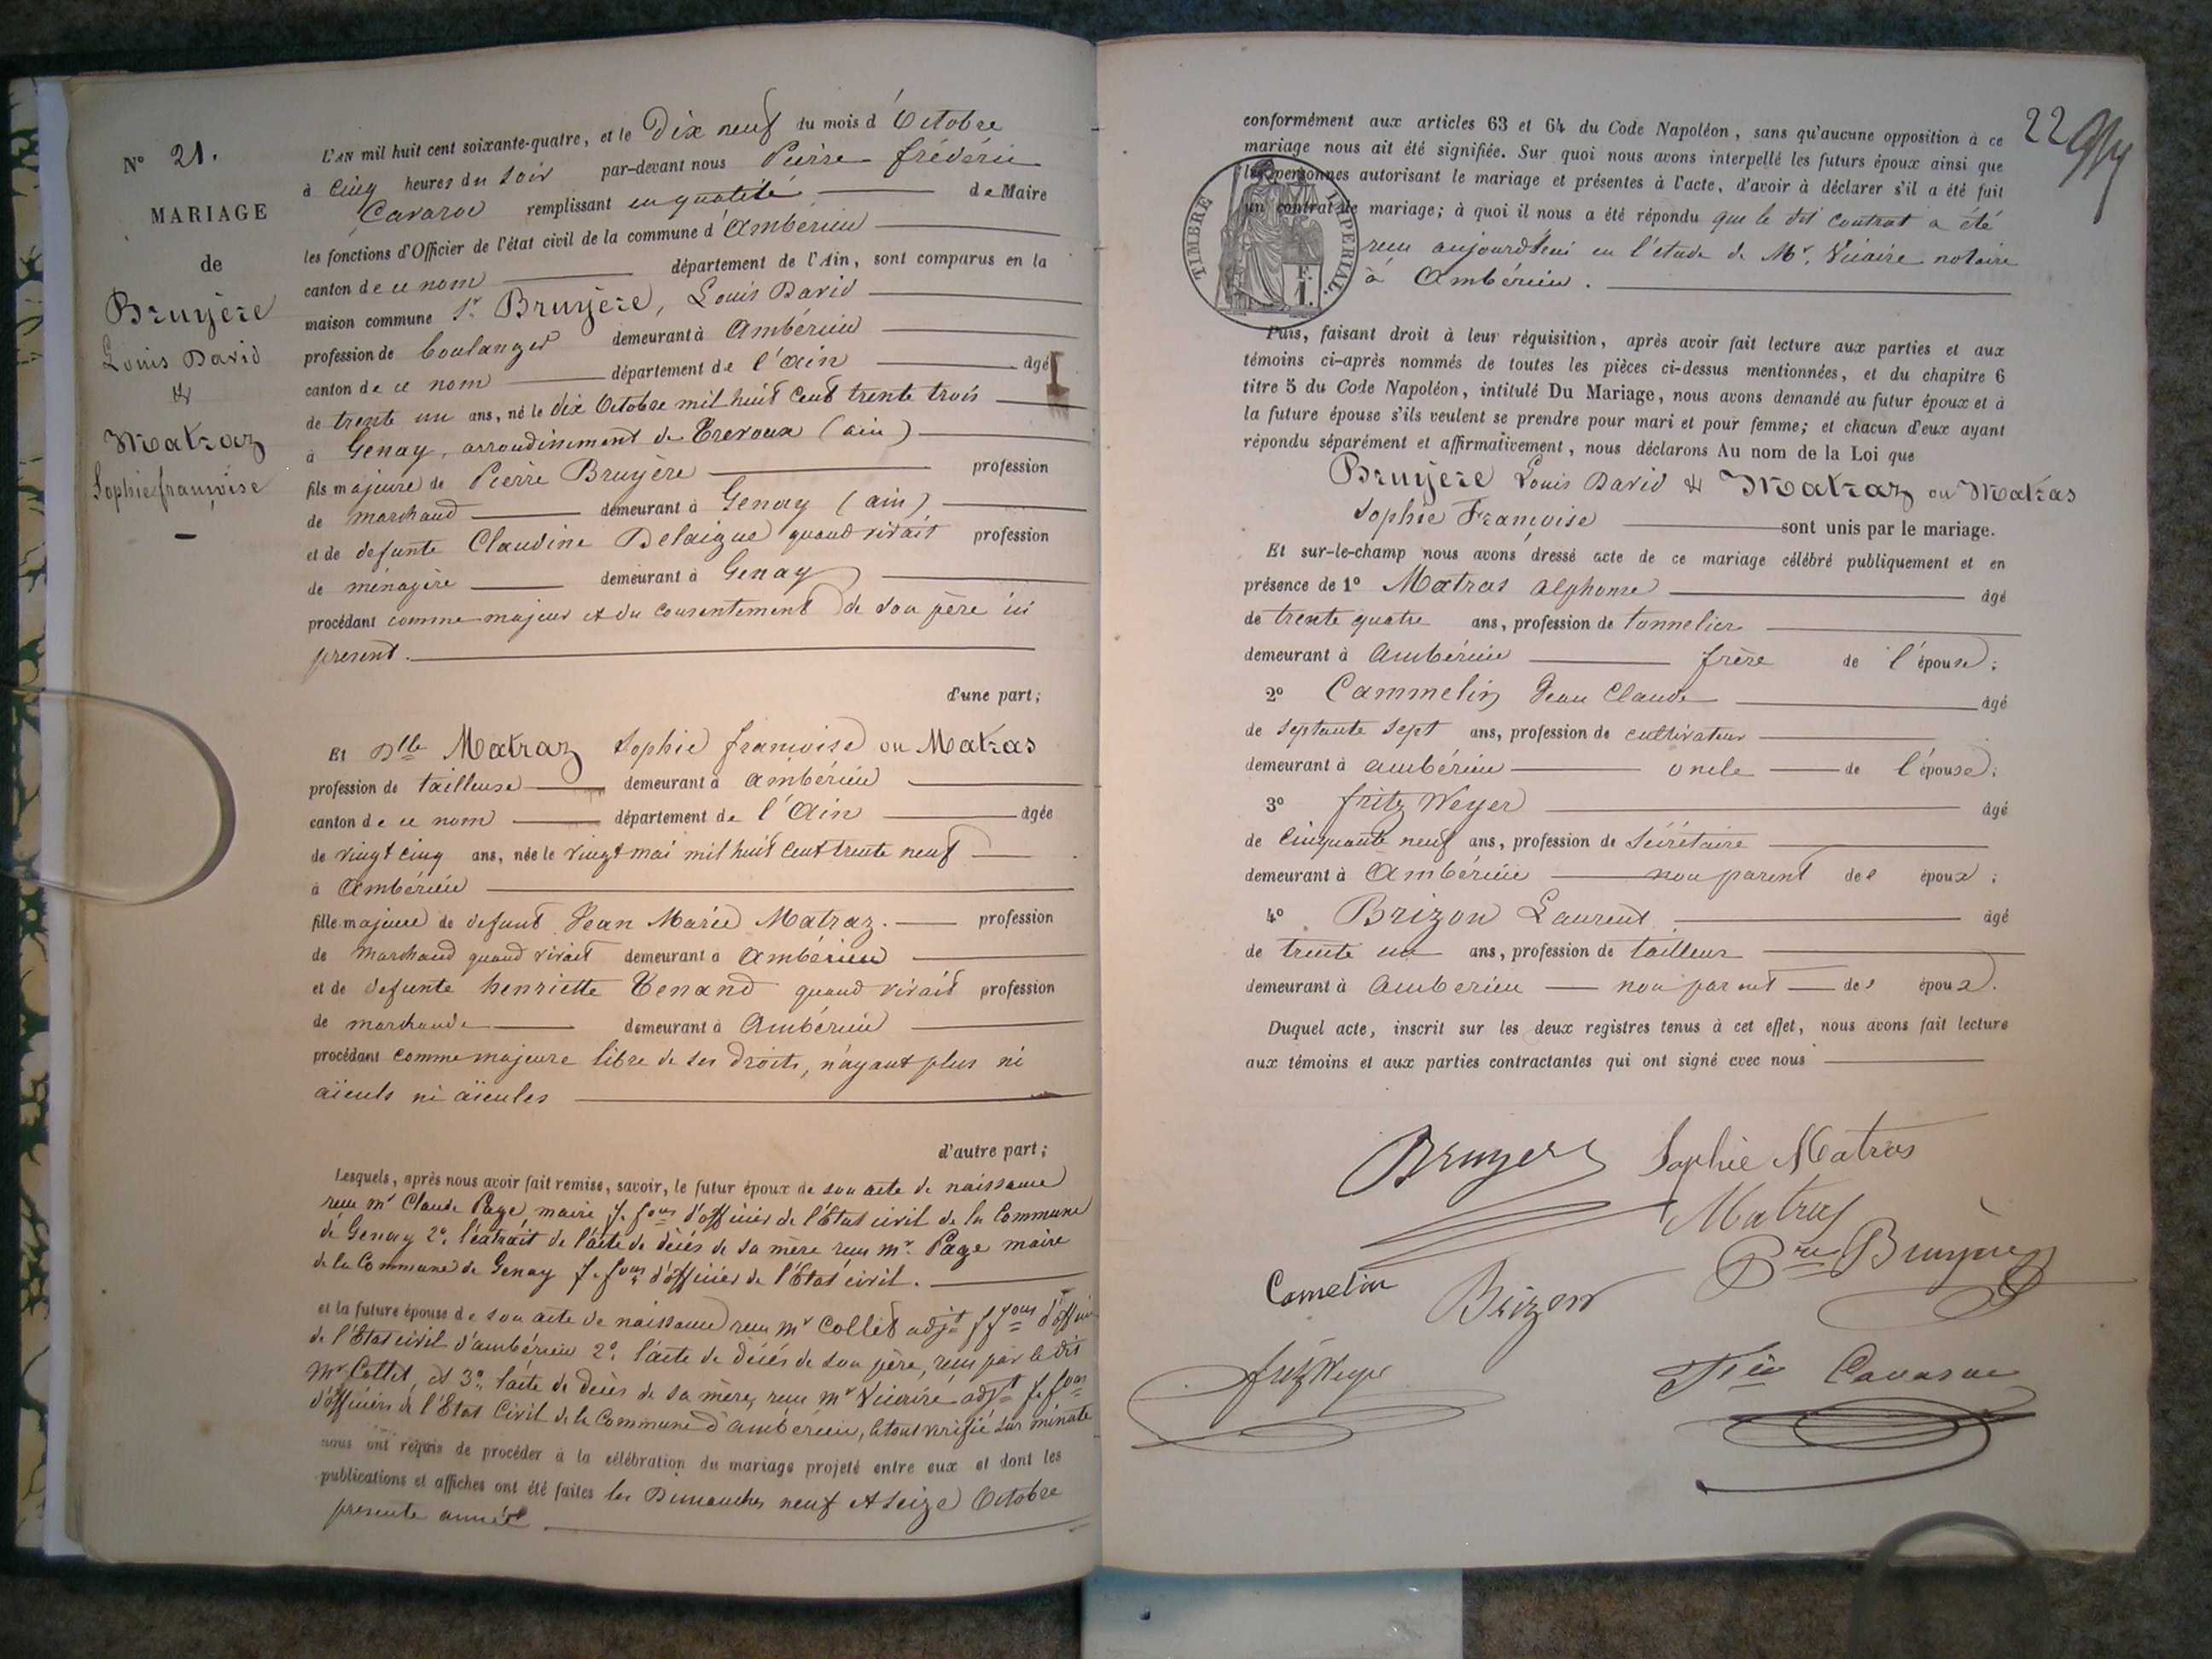 N° 21.
MARIAGE
de
Bruyère
Louis David
&
Matraz
Sophie françoise
L'AN mil huit cent soixante-quatre, et le Dix neuf du mois d'Octobre
à Cinq heures du soir par-devant nous Pierre frédéric
Cavaroc remplissant en qualité de Maire
les fonctions d'Officier de l'état civil de la commune d'Ambérieu
canton de ce nom département de l'Ain, sont comparus en la
maison commune Sr Bruyère, Louis David
profession de boulanger demeurant à Ambérieu
canton de ce nom département de l'Ain âgé
de trente un ans, né le dix Octobre mil huit cent trente trois
à Genay, arrondissement de Trevoux (ain)
fils majeure de Pierre Bruyère profession
de marchand demeurant à Genay (ain)
et de defunte Claudine Delaigue quand vivait profession
de ménagère demeurant à Genay
procédant comme majeur et du consentement de son père ici
present.
d'une part;
Et Dlle Matraz Sophie françoise ou Matras
profession de tailleuse demeurant à ambérieu
canton de ce nom département de l'Ain âgée
de vingt cinq ans, née le vingt mai mil huit cent trente neuf
à Ambérieu
fille majeure de defunt Jean Marie Matraz. profession
de marchand quand vivait demeurant à Ambérieu
et de defunte henriette Tenand quand vivait profession
de marchande demeurant à Ambérieu
procédant comme majeure libre de ses droits, n'ayant plus ni
aïeuls ni aïeules
d'autre part;
Lesquels, après nous avoir fait remise, savoir, le futur époux de son acte de naissance
reçu mr Claude Page maire f. fons d'officier de l'État civil de la Commune
de Genay 2°. l'extrait de l'acte de décès de sa mère reçu mr. Page maire
de la Commune de Genay f. fons d'officier de l'État civil.
et la future épouse de son acte de naissance reçu mr Collet adjt f fons d'officier
de l'État civil d'ambérieu 2°. l'acte de décès de son père, reçu par le dit
Mr Collet, et 3°. l'acte de décès de sa mère, reçu mr Vicaire adjt f. fons
d'officier de l'État Civil de la Commune d'ambérieu, le tout vérifié sur minute
nous ont requis de procéder à la célébration du mariage projeté entre eux et dont les
publications et affiches ont été faites les Dimanches neuf et seize Octobre
presente année
22
conformément aux articles 63 et 64 du Code Napoléon, sans qu'aucune opposition à ce
mariage nous ait été signifiée. Sur quoi nous avons interpellé les futurs époux ainsi que
les personnes autorisant le mariage et présentes à l'acte, d'avoir à déclarer s'il a été fait
un contrat de mariage; à quoi il nous a été répondu que le dit contrat a été
reçu aujourd'hui en l'étude de Mr. Vicaire notaire
à Ambérieu.
TIMBRE IMPÉRIAL.
Puis, faisant droit à leur réquisition, après avoir fait lecture aux parties et aux
témoins ci-après nommés de toutes les pièces ci-dessus mentionnées, et du chapitre 6
titre 5 du Code Napoléon, intitulé Du Mariage, nous avons demandé au futur époux et à
la future épouse s'ils veulent se prendre pour mari et pour femme; et chacun d'eux ayant
répondu séparément et affirmativement, nous déclarons Au nom de la Loi que
Bruyère Louis David & Matraz ou Matras
Sophie Françoise sont unis par le mariage.
Et sur-le-champ nous avons dressé acte de ce mariage célébré publiquement et en
présence de 1° Matras alphonse âgé
de trente quatre ans, profession de tonnelier
demeurant à Ambérieu frère de l'épouse;
2° Cammelin Jean Claude âgé
de septante sept ans, profession de cultivateur
demeurant à ambérieu oncle de l'épouse;
3° fritz Weyer âgé
de cinquante neuf ans, profession de Sécrétaire
demeurant à Ambérieu non parent des époux;
4° Brizon Laurent âgé
de trente un ans, profession de tailleur
demeurant à Amberieu non parent des époux.
Duquel acte, inscrit sur les deux registres tenus à cet effet, nous avons fait lecture
aux témoins et aux parties contractantes qui ont signé avec nous
Bruyere Sophie Matras
Matras
Pre Bruyère
Camelin Brizon
fritz Weyer Fric Cavaroc